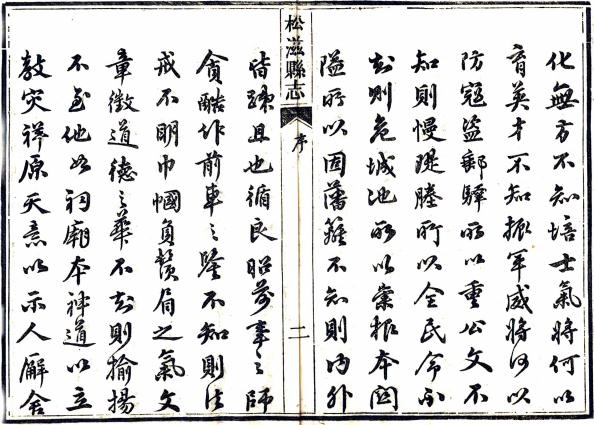 化無方不知培士氣將何以
育英才不知振軍威將何以
防寇盜郵驛所以重公文不
知則慢堤塍所以全民命不
知則危城池所以崇根本關
隘所以固藩籬不知則內外
松滋縣志
序
二
皆疎且也循良昭前事之師
貪酷作前車之鑒不知則法
戒不明巾幗負鬚眉之氣文
章徵道德之華不知則揄揚
不至他如祠廟本神道以立
教災祥原天意以示人廨舍